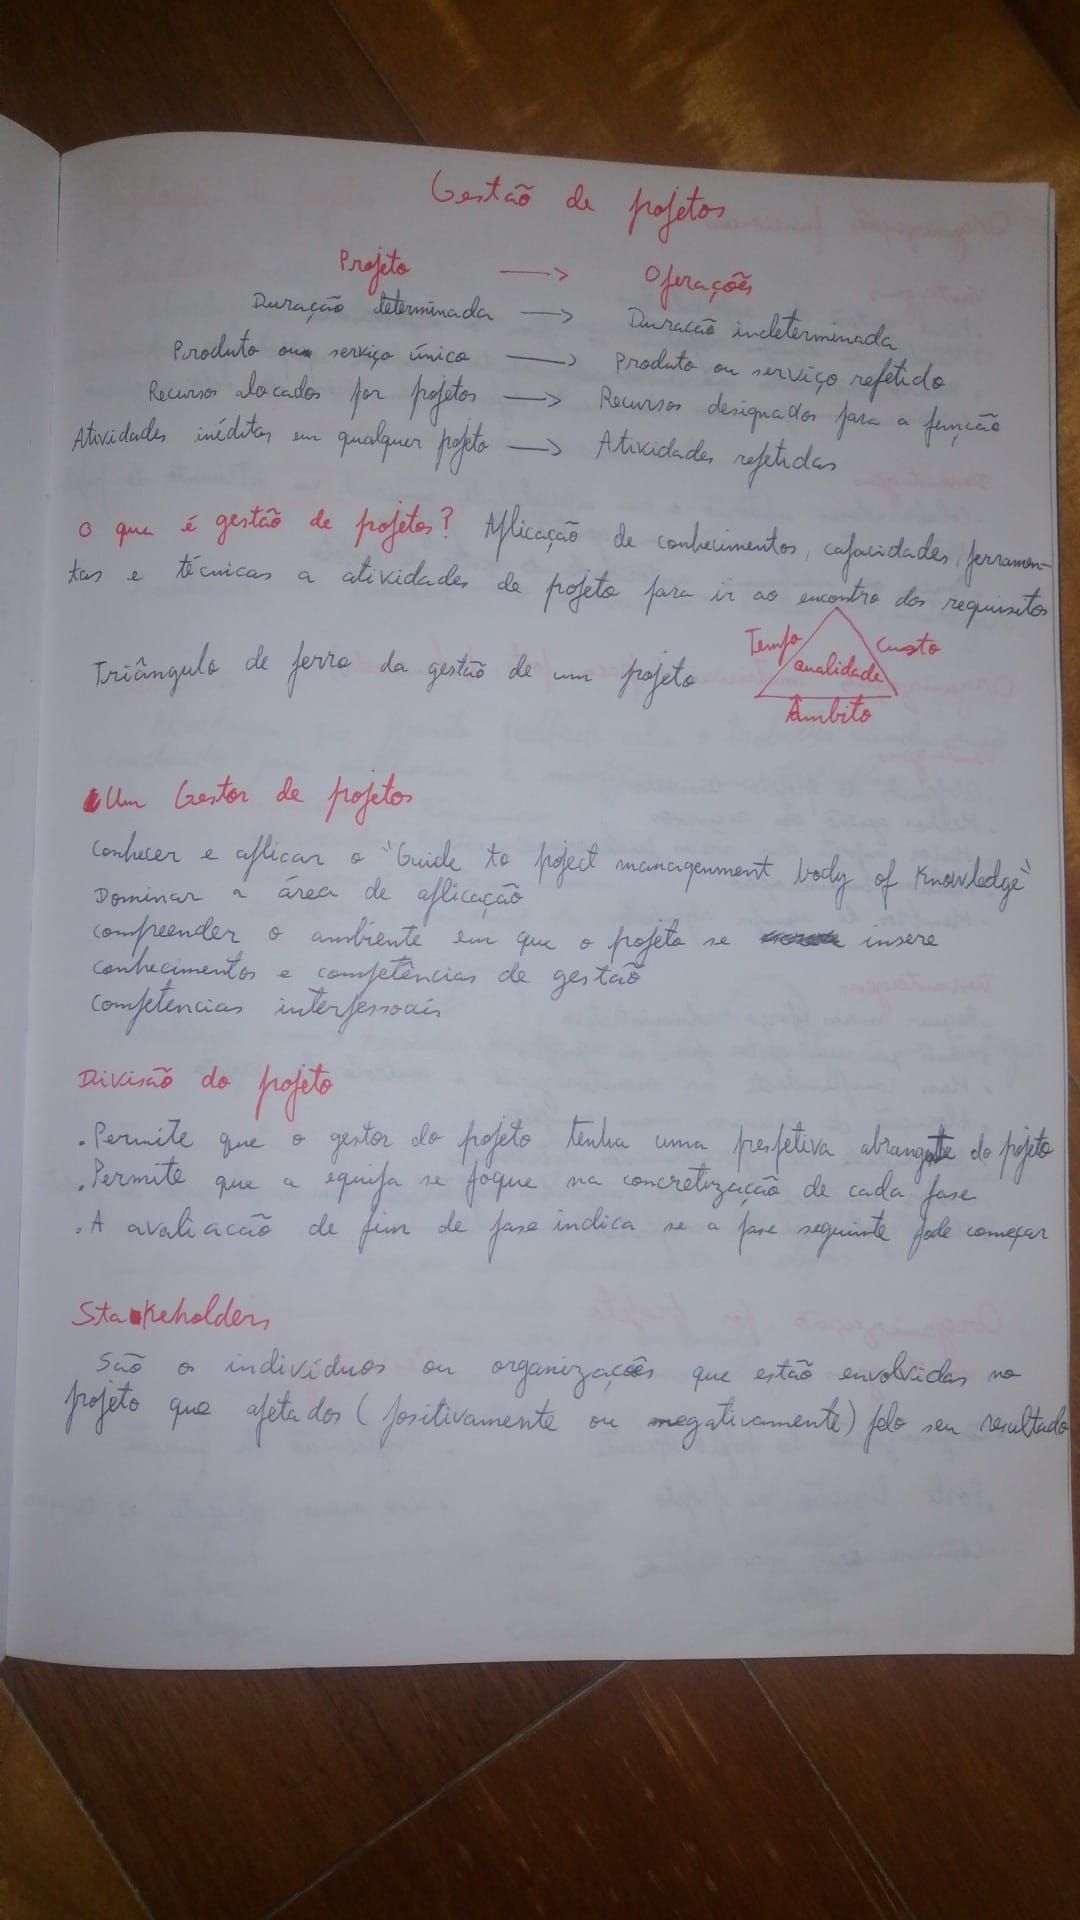 Gestão de projetos
Projeto → Operações
Duração determinada → Duracão indeterminada
Produto ou serviço único → Produto ou serviço repetido
Recursos alocados por projetos → Recursos designados para a função
Atividades inéditas em qualquer projeto → Atividades repetidas
O que é gestão de projetos? Aplicação de conhecimentos, capacidades, ferramen-
tas e técnicas a atividades de projeto para ir ao encontro dos requisitos
Triângulo de ferro da gestão de um projeto
Tempo Custo
Qualidade
Âmbito
Um Gestor de projetos
Conhecer e aplicar o "Guide to poject management body of Knowledge"
Dominar a área de aplicação
compreender o ambiente em que o projeto se insere
conhecimentos e competências de gestão
Competencias interpessoais
Divisão do projeto
. Permite que o gestor do projeto tenha uma prespetiva abrangente do projeto
. Permite que a equipa se foque na concretização de cada fase
. A avaliacão de fim de fase indica se a fase seguinte pode começar
Stakeholders
São os indivíduos ou organizações que estão envolvidas no
projeto que afetados (positivamente ou negativamente) pelo seu resultado